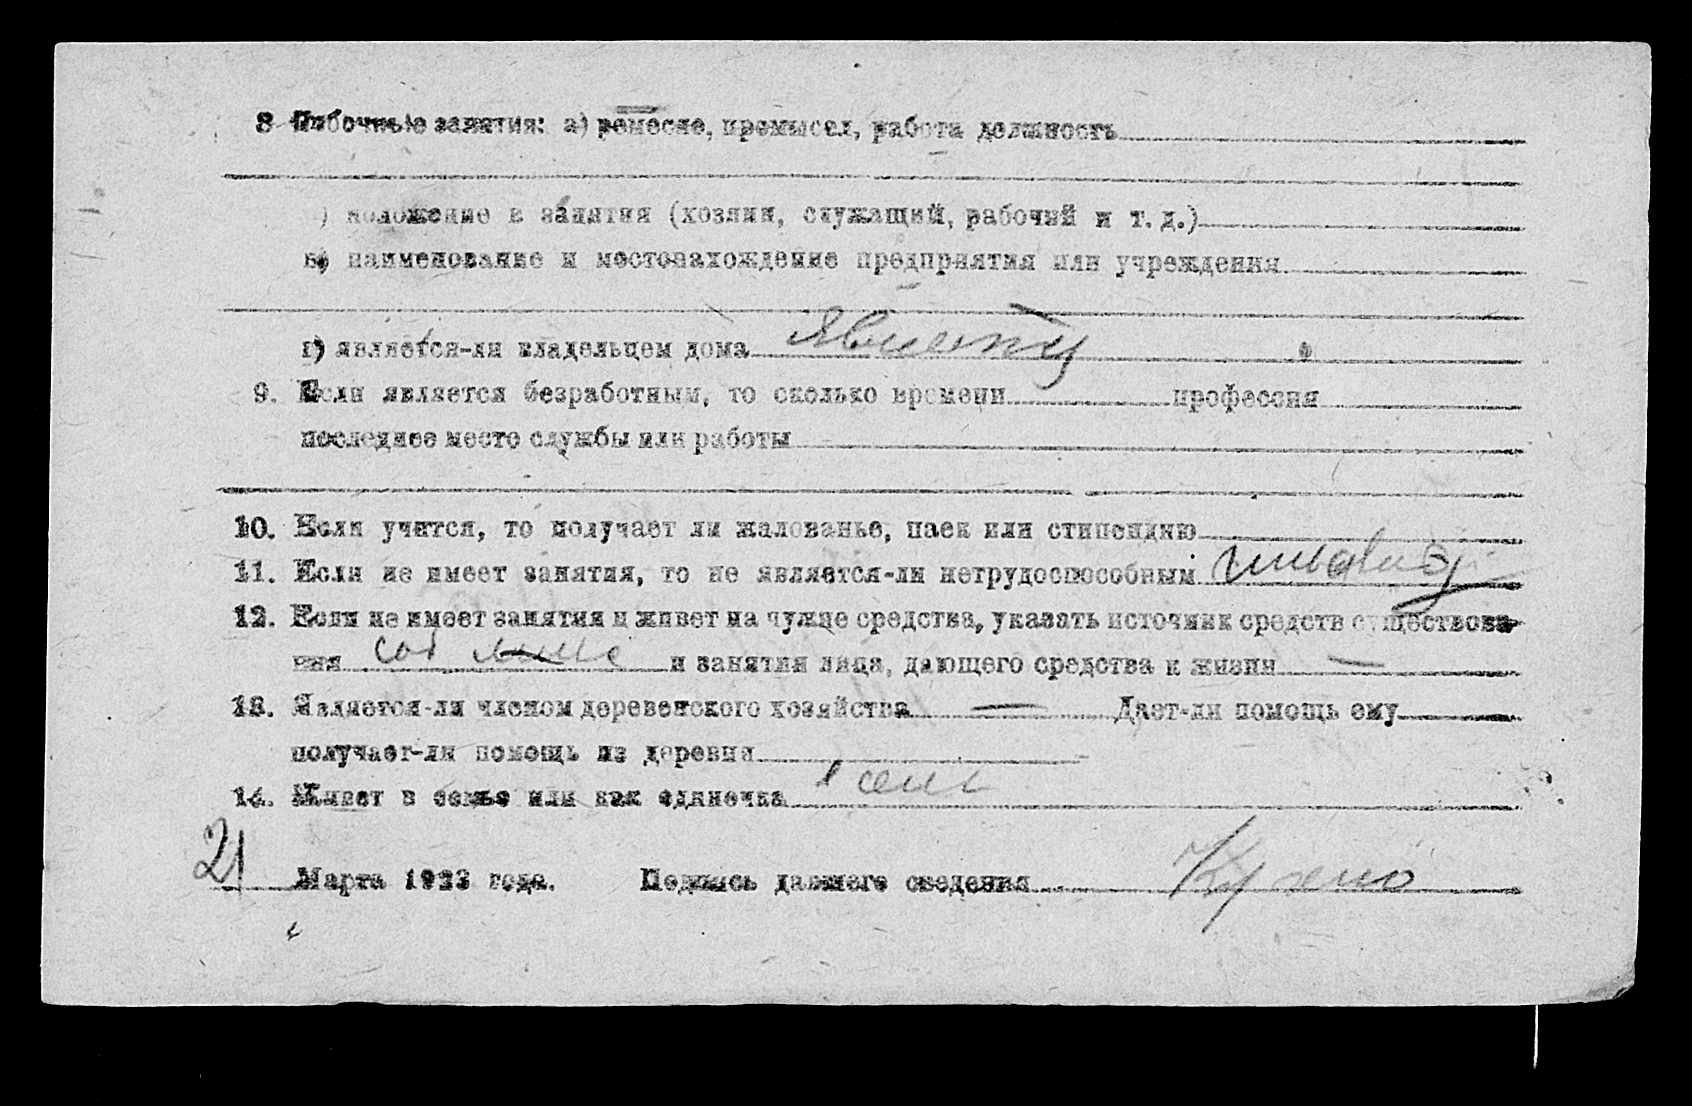 8 Побочные занятия: а) ремесле, промысел, работа должность
) положение в занятия (хозяин, служащий, рабочий и т. д.)
в) наименование и местонахождение предприятия или учреждения
г) является-ли владельцем дома
9. Если является безработным, то сколько времени профессия
последнее место службы или работы
10. Если учится, то получает ли жалованье, паек или стипендию
11. Если не имеет занятия, то не является-ли нетрудоспособным
12. Если не имеет занятия и живет на чужие средства, указать источник средств существова-
ния соб и занятия лица, дающего средства к жизни —
13. Является-ли членом деревенского хозяйства — Дает-ли помощь ему
получает-ли помощь из деревни
14. Живет в семье или как одиночка
21 Марта 1923 года. Подпись давшего сведения